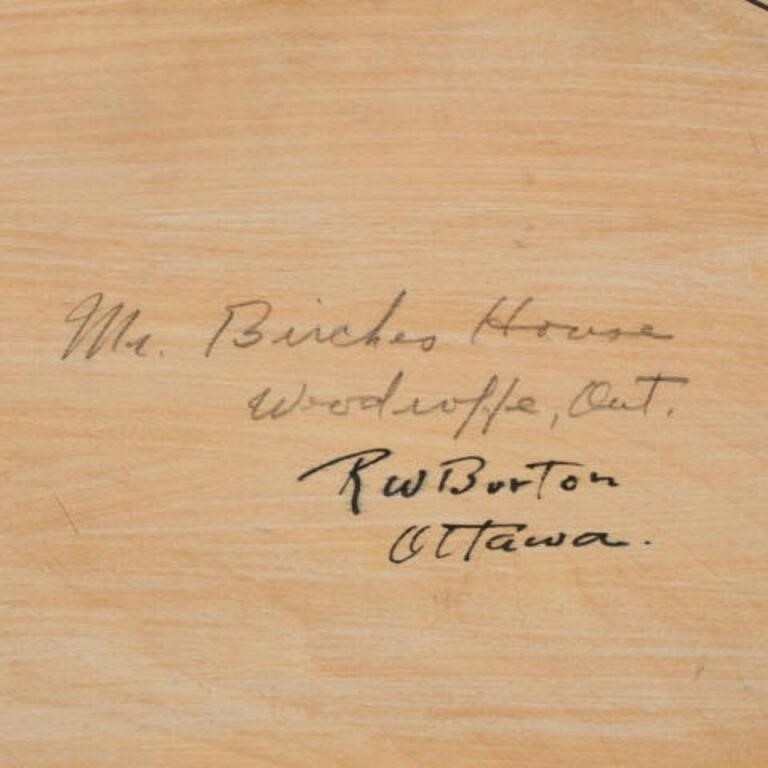 Mr. Birches House
Woodroffe, Ont.
RWBurton
Ottawa.